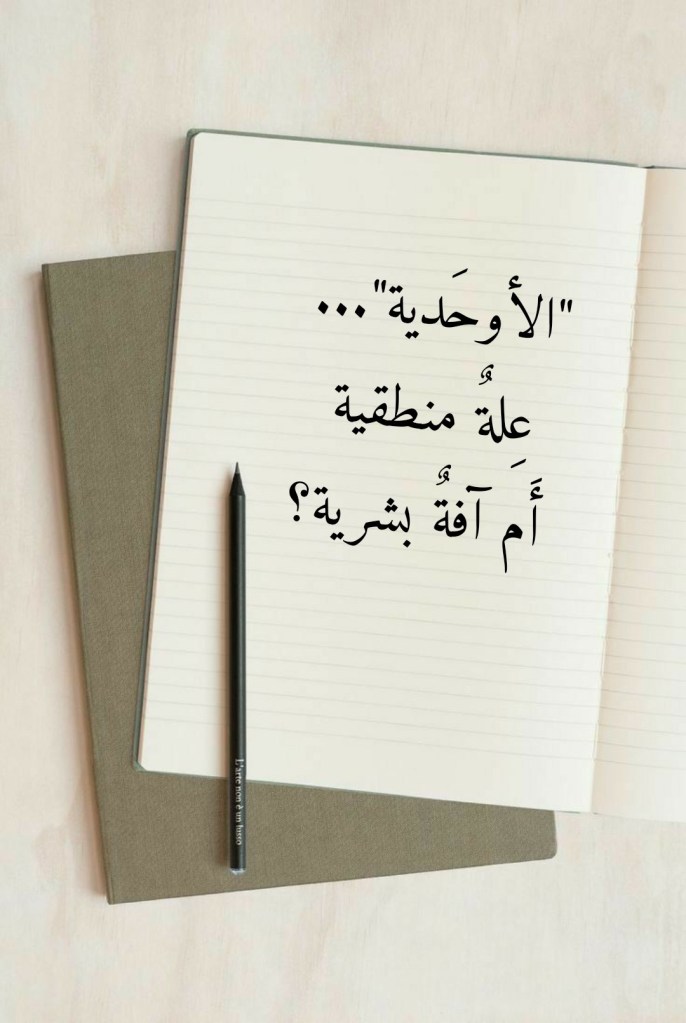 "الأوحَدية"...
علةٌ منطقية
أَم َ آفةٌ بشرية؟
L'arte non è un lusso